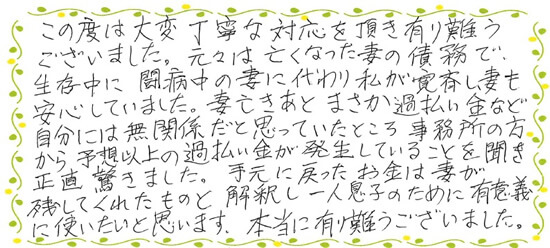 この度は大変丁寧な対応を頂き有り難う
ございました。元々は亡くなった妻の債務で、
生存中に闘病中の妻に代わり私が完済し妻も
安心していました。妻亡きあとまさか過払い金など
自分には無関係だと思っていたところ事務所の方
から予想以上の過払い金が発生していることを聞き
正直驚きました。手元に戻ったお金は妻が
残してくれたものと解釈し一人息子のために有意義
に使いたいと思います。本当に有り難うございました。